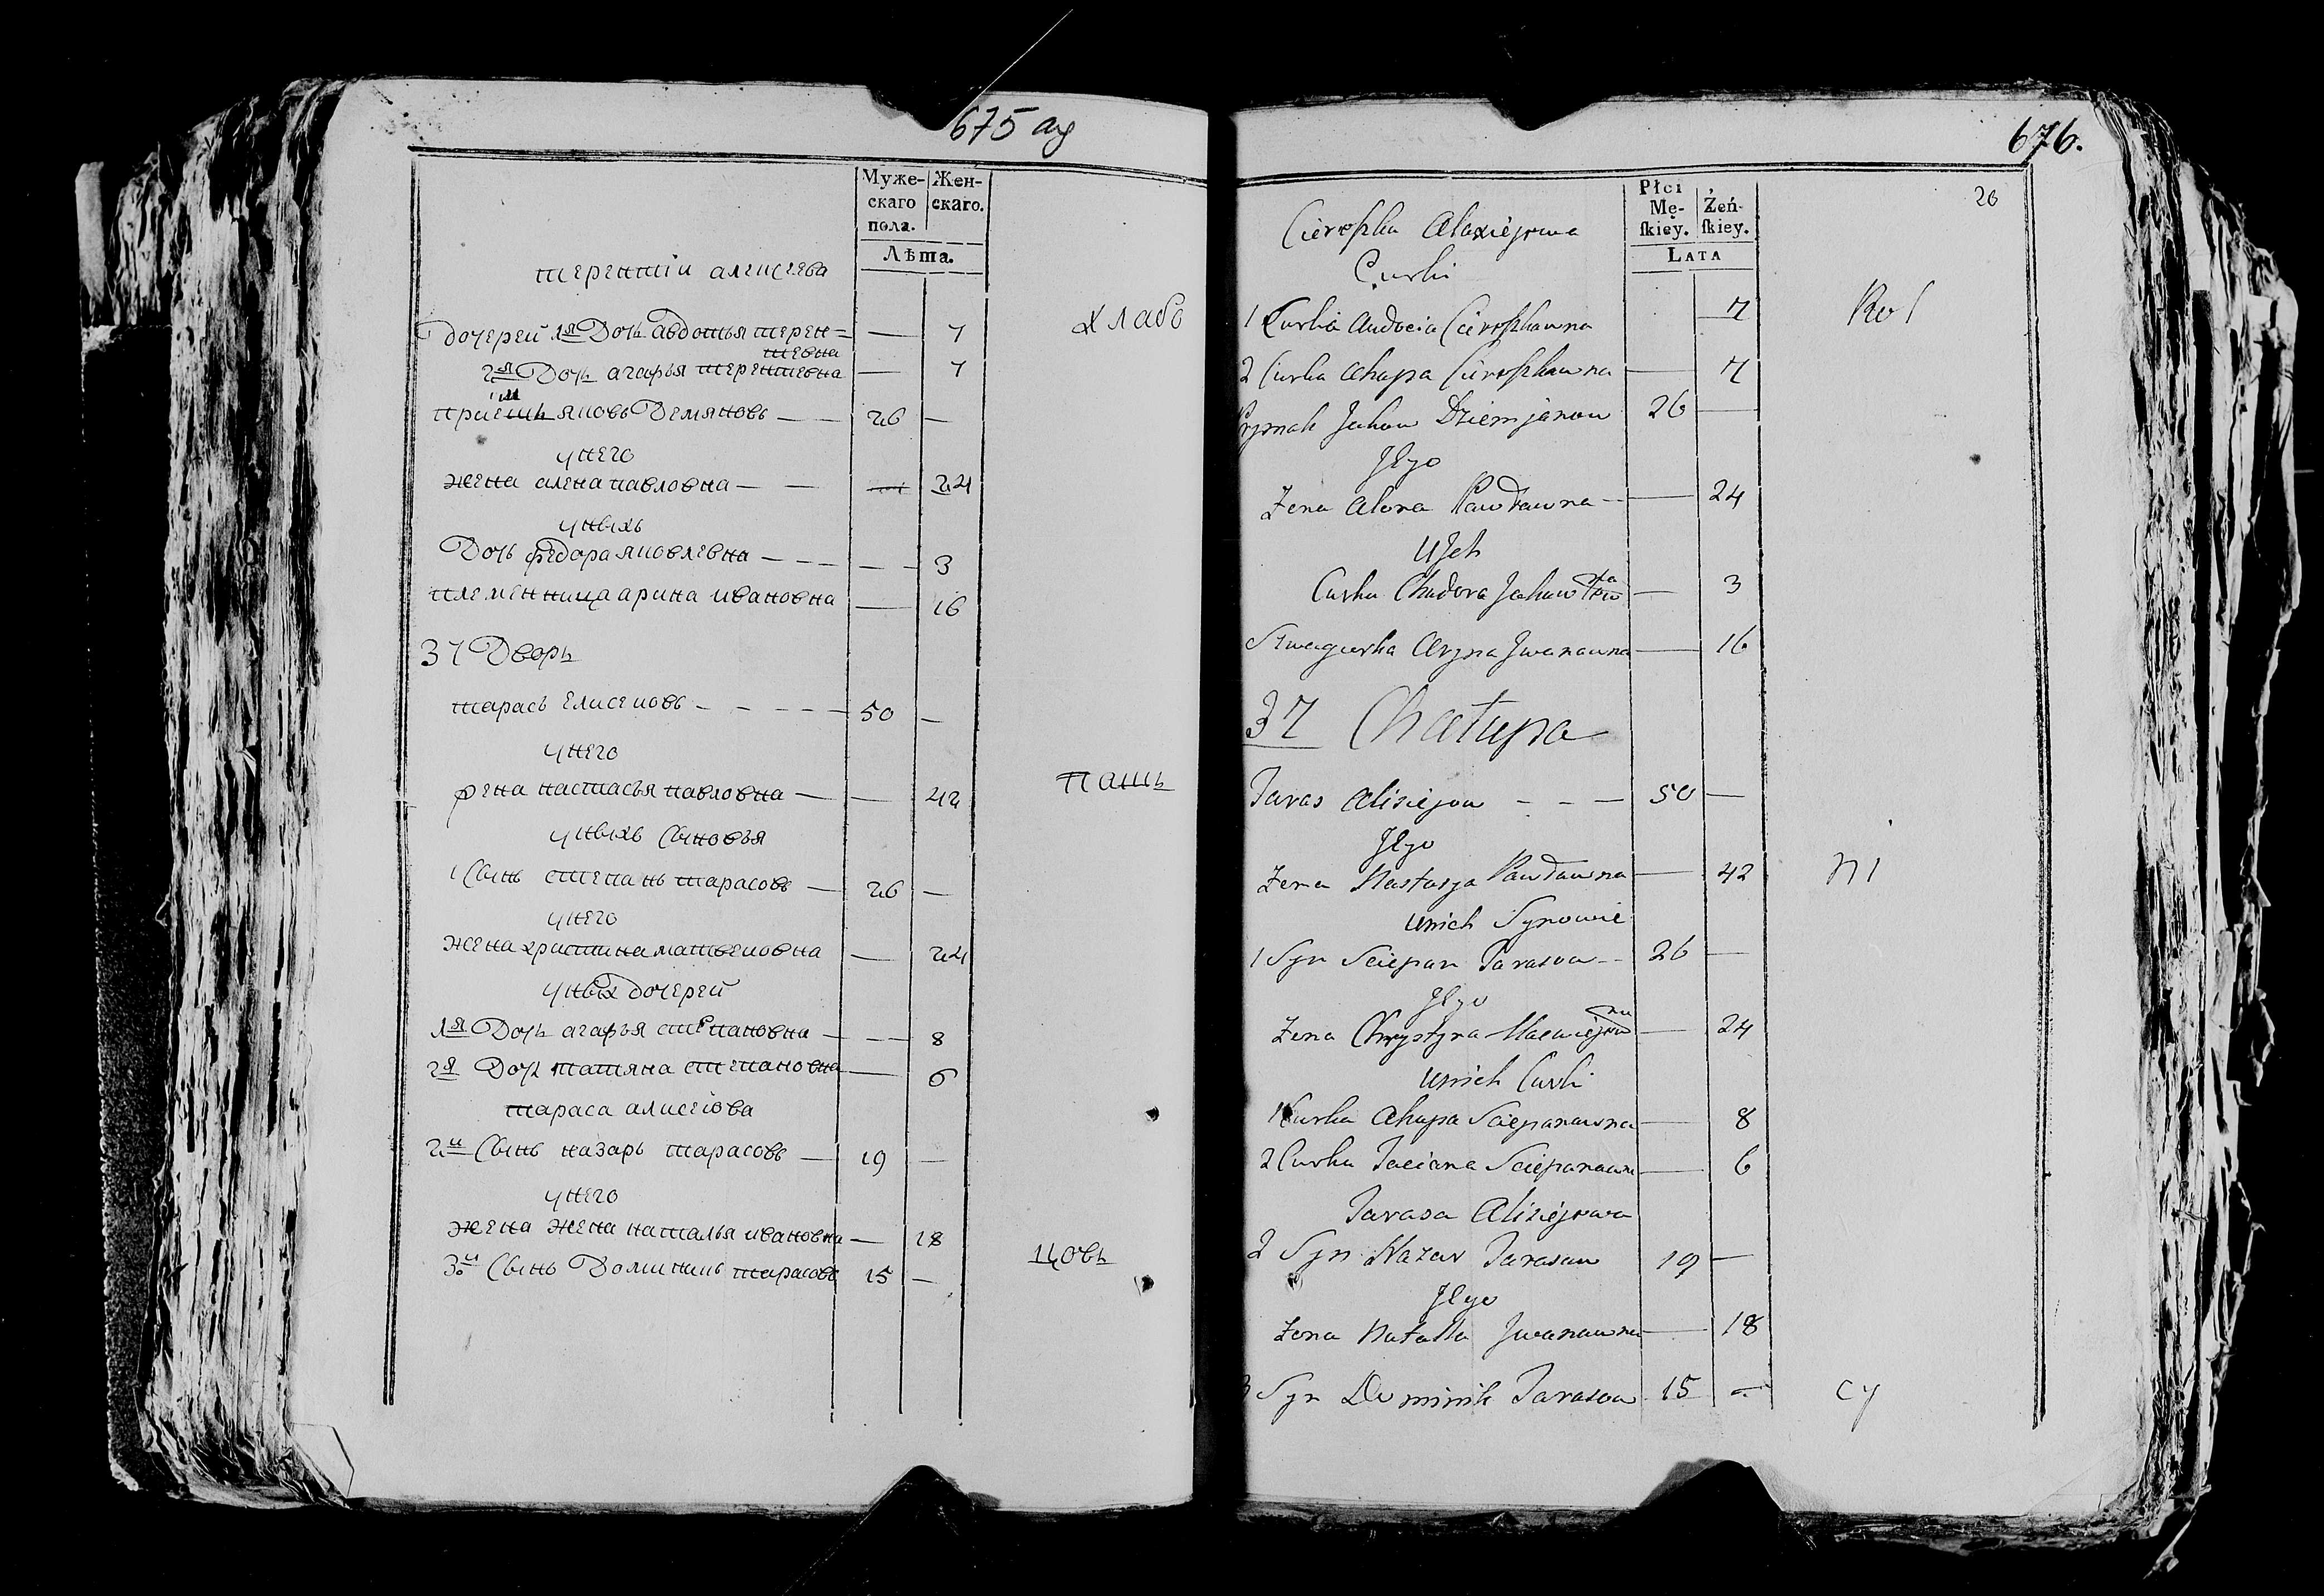 675 об
Муже-
скаго
пола.
Жен-
скаго.
Лѣта.
терентіи алеисеева
дочерей 1я Дочь авдотья терен=
тевна — 7
хлабо
2я Дочь агафья терентевна — 7
приемь яновь Демяновъ — 26 —
унего
жена алена павловна — — 24
уныхь
Дочь федора яковлевна — — — 3
племенница арина ивановна — 16
37 Дворь
тарась елисеновь — — — 50 —
унего
жена настасья павловна — — 42
пашь
уныхь сыновья
1 Сынь степань тарасовъ — 26 —
унего
жена христина матвеиовна — 24
уных дочерей
1я Дочь агафья степановна — — 8
2я Дочь татяна степановна — 6
тараса алисеіова
2и Сынь назарь тарасовь — 19 —
унего
жена жена наталья ивановна — 18
3и Сынь Доминикь тарасовъ 15 —
цовь
676.
26
Płci
Mę-
ſkiey.
Żeń-
ſkiey.
Lata
Cieroszku Alaxiejowa
Curki
1 Curka Audocia Cieroszkawna 7
Rol
2 Curka Ahapa Cieroszkawna — 7
Prymak Jakow Dziemjanow 26 —
Jego
Żena Alona Pawławna — 24
U Jch
Curka Chadora Jakuwlewna — 3
Siwagurka Aryna Jwanawna — 16
37 Chałupa
Taras Alisiejow - - - 50 —
Jego
Żena Nastasja Pawławna — 42
ni
unich Synowie
1 Syn Sciepan Tarasow - - 26 —
Jego
Żena Chrystyna Maciejowna — 24
unich Curki
1 Curka Ahapa Sciepanawna — 8
2 Curka Taciana Sciepanawna — 6
Tarasa Alisiejowa
2 Syn Nazar Tarasow 19 —
Jego
Żona Natalla Jwanawna — 18
3 Syn Dominik Tarasow 15 —
cy